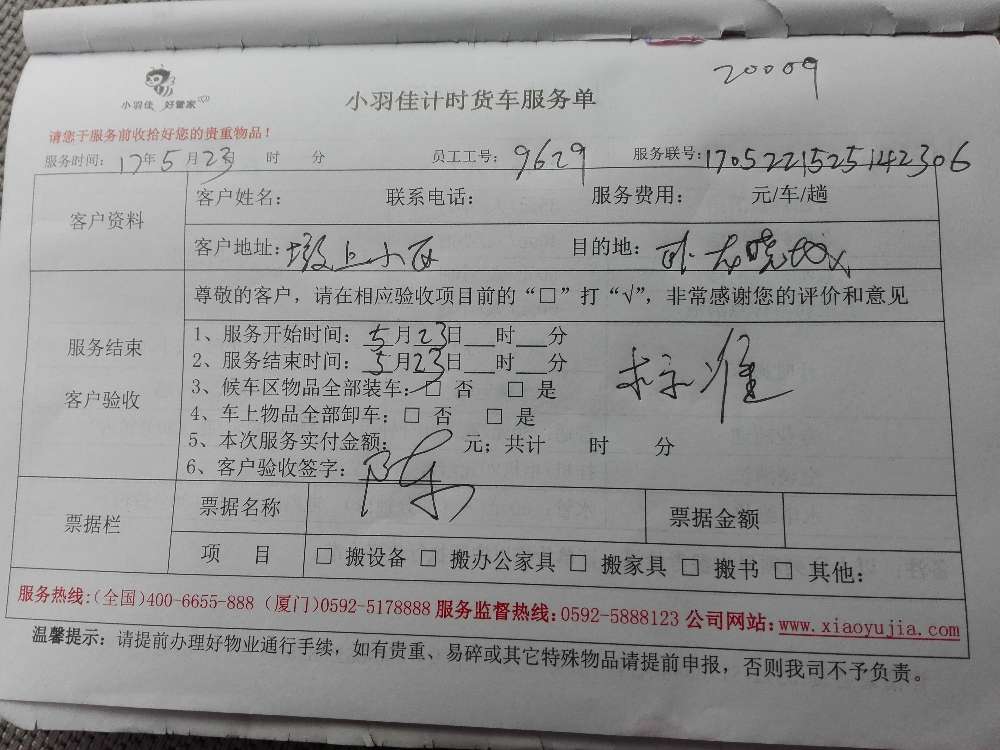 20009
小羽佳 好管家
小羽佳计时货车服务单
请您于服务前收拾好您的贵重物品！
服务时间：17年5月23日 时 分 员工工号：9629 服务联号：1705221525142306
客户资料
客户姓名： 联系电话： 服务费用： 元/车/趟
客户地址：墩上小区 目的地：
服务结束
客户验收
尊敬的客户，请在相应验收项目前的“□”打“√”，非常感谢您的评价和意见
1、服务开始时间：5月23日___时___分
2、服务结束时间：5月23日___时___分
3、候车区物品全部装车：□ 否 □ 是
标准
4、车上物品全部卸车：□ 否 □ 是
5、本次服务实付金额： 元；共计 时 分
6、客户验收签字：
票据栏
票据名称 票据金额
项 目 □ 搬设备 □ 搬办公家具 □ 搬家具 □ 搬书 □ 其他：
服务热线：（全国）400-6655-888（厦门）0592-5178888 服务监督热线：0592-5888123 公司网站：www.xiaoyujia.com
温馨提示：请提前办理好物业通行手续，如有贵重、易碎或其它特殊物品请提前申报，否则我司不予负责。